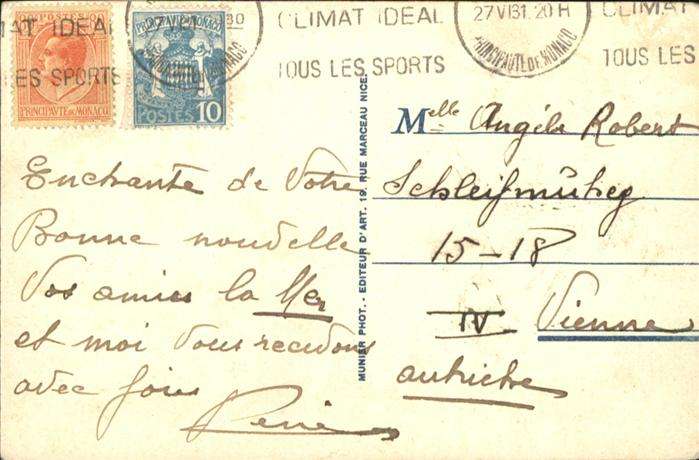 MAT IDEAL
CLIMAT IDEAL
27 VI 31. 20 H
CLIMAT
LES SPORTS
TOUS LES SPORTS
PRINCIPAUTE DE MONACO
TOUS LES
PRINCIPAVTE DE MONACO
PRINCIPAVTE MONACO
POSTES 10
Melle Angéla Robert
Schleifmüheg
15-18
IV Vienne
autriche
Enchante de Votre
Bonne nouvelle
Vos amies la Mer
et moi Vous recevons
avec foie
MUNIER PHOT. - EDITEUR D'ART. 19, RUE MARCEAU NICE.